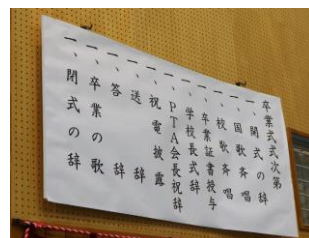 卒業式式次第
一、開式の辞
一、国歌斉唱
一、校歌斉唱
一、卒業証書授与
一、学校長式辞
一、PTA会長祝辞
一、祝電披露
一、送辞
一、答辞
一、卒業の歌
一、閉式の辞